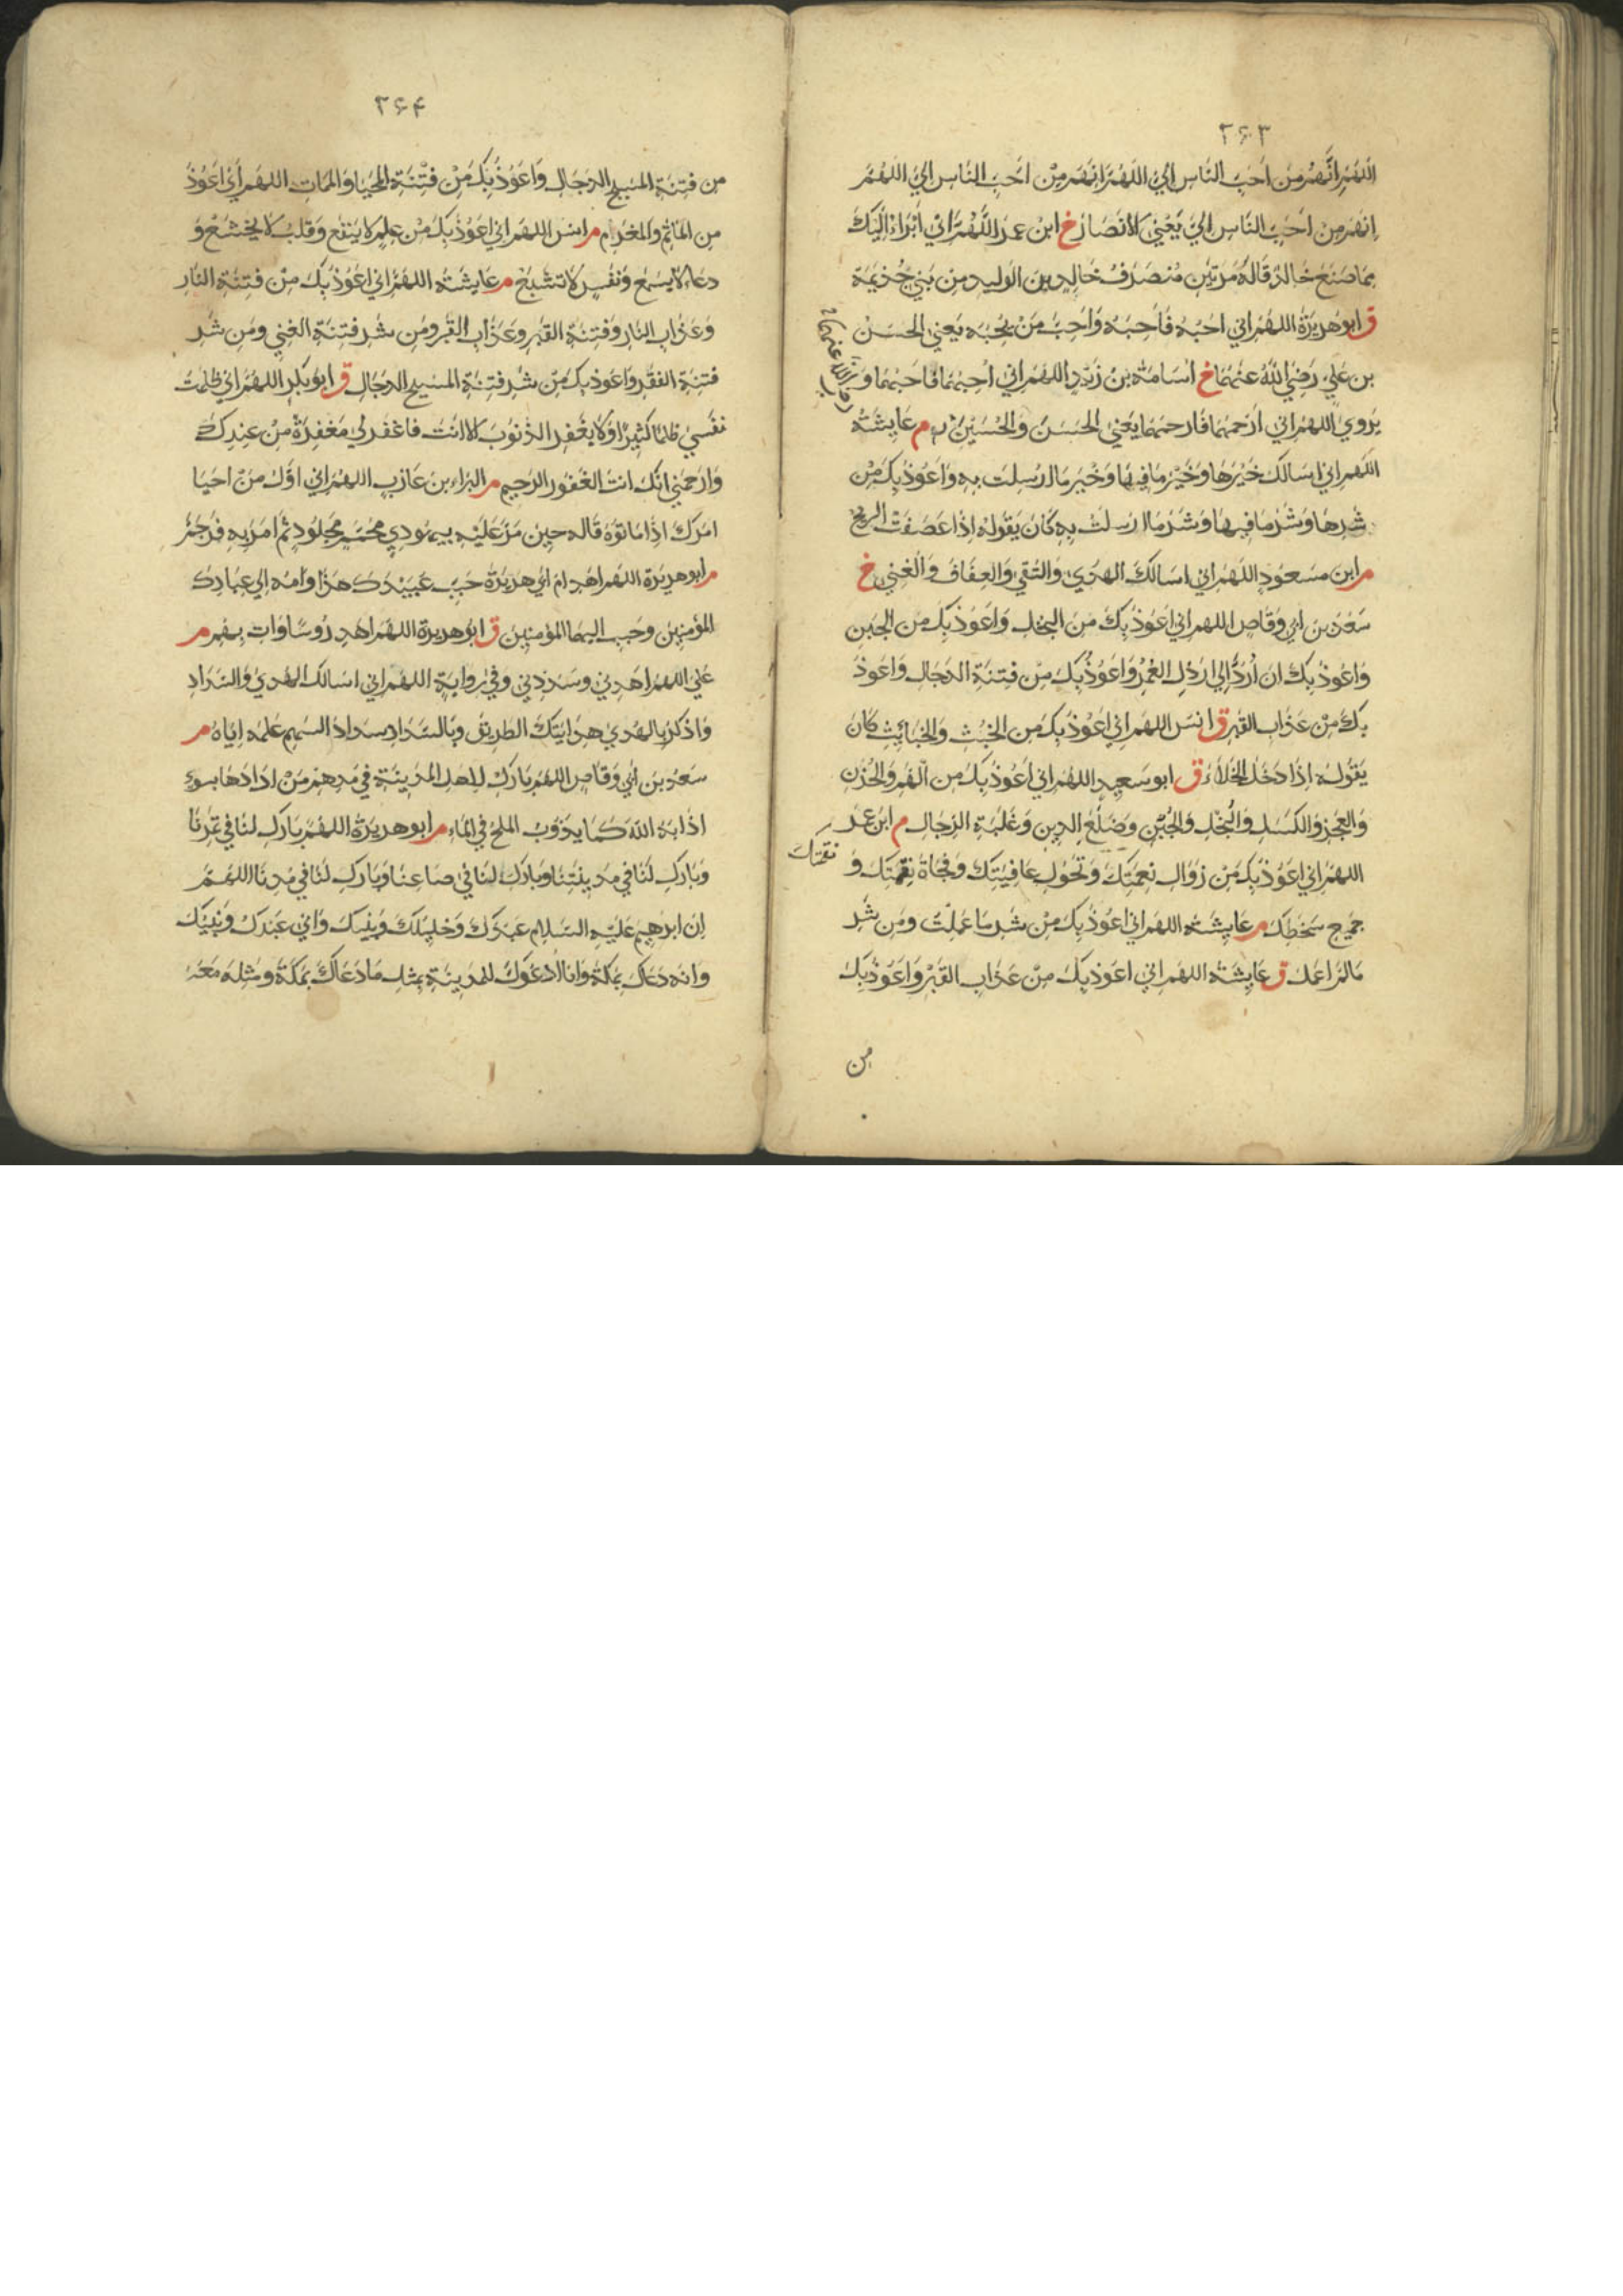 ۲۶۳
اللهم انهم من احب الناس الي اللهم انهم من احب الناس الي اللهم
انهم من احب الناس الي يعني الانصار خ ابن عمر اللهم اني ابراء اليك
مما صنع خالد قاله مرتين منصرف خالد بن الوليد من بني جذيمة
ق ابو هريرة اللهم اني احبه فاحبه واحب من يحبه يعني الحسن
بن علي رضي الله عنهما خ اسامة بن زيد اللهم اني احبهما فاحبهما و
يروي اللهم اني ارحمهما فارحمهما يعني الحسن والحسين م عايشة
اللهم اني اسالك خيرها وخير ما فيها وخير ما ارسلت به واعوذ بك من
شرها وشر ما فيها وشر ما ارسلت به كان يقوله اذا عصفت الريح
م ابن مسعود اللهم اني اسالك الهدي والتقي والعفاف والغني خ
سعد بن ابي وقاص اللهم اني اعوذ بك من البخل واعوذ بك من الجبن
واعوذ بك ان ارد الي ارذل العمر واعوذ بك من فتنة الدجال واعوذ
بك من عذاب القبر ق انس اللهم اني اعوذ بك من الخبث والخبائث كان
يقوله اذا دخل الخلاء ق ابو سعيد اللهم اني اعوذ بك من الهم والحزن
والعجز والكسل والبخل والجبن وضلع الدين وغلبة الرجال م ابن عمر
نقمتك
اللهم اني اعوذ بك من زوال نعمتك وتحول عافيتك وفجاة نقمتك و
جميع سخطك م عايشة اللهم اني اعوذ بك من شر ما عملت ومن شر
ما لم اعمل ق عايشة اللهم اني اعوذ بك من عذاب القبر واعوذ بك
من
۲۶۴
من فتنة المسيح الدجال واعوذ بك من فتنة المحيا والممات اللهم اني اعوذ
من الماثم والمغرم م انس اللهم اني اعوذ بك من علم لا ينفع وقلب لا يخشع و
دعاء لا يسمع ونفس لا تشبع م عايشة اللهم اني اعوذ بك من فتنة النار
وعذاب النار وفتنة القبر وعذاب القبر ومن شر فتنة الغني ومن شر
فتنة الفقر واعوذ بك من شر فتنة المسيح الدجال ق ابو بكر اللهم اني ظلمت
نفسي ظلما كثيرا ولا يغفر الذنوب الا انت فاغفر لي مغفرة من عندك
وارحمني انك انت الغفور الرحيم م البراء بن عازب اللهم اني اول من احيا
امرك اذ اماتوه قاله حين مر عليه بيهودي محمم مجلود ثم امر به فرجم
م ابو هريرة اللهم اهد ام ابي هريرة حبب عبيدك هذا وامه الي عبادك
المؤمنين وحبب اليهما المؤمنين ق ابو هريرة اللهم اهد دوسا وات بهم م
علي اللهم اهدني وسددني وفي رواية اللهم اني اسالك الهدي والسداد
واذكر بالهدي هدايتك الطريق وبالسداد سداد السهم علمه اياه م
سعد بن ابي وقاص اللهم بارك لاهل المدينة في مدهم من ارادها بسوء
اذابه الله كما يذوب الملح في الماء م ابو هريرة اللهم بارك لنا في ثمرنا
وبارك لنا في مدينتنا وبارك لنا في صاعنا وبارك لنا في مدنا اللهم
ان ابرهيم عليه السلام عبدك وخليلك ونبيك واني عبدك ونبيك
وانه دعاك بمكة وانا ادعوك للمدينة بمثل ما دعاك بمكة ومثله معه